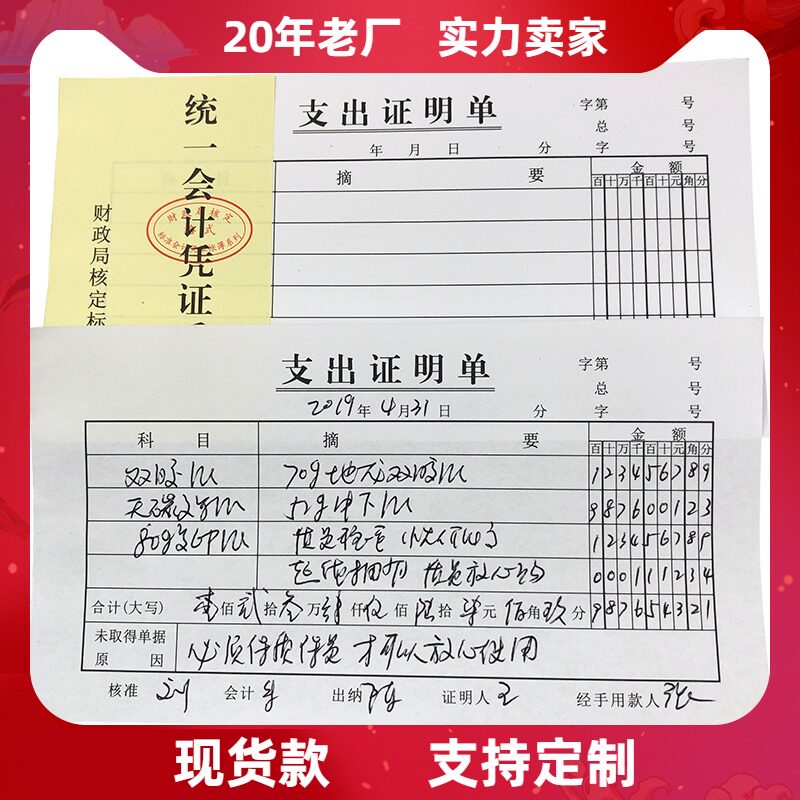 20年老厂 实力卖家
统一会计凭证
财政局核定标
财政局核定
支出证明单
字第 号
总 号
年 月 日 分 字 号
摘 要 金 额
百十万千百十元角分
支出证明单
字第 号
总 号
2019年4月31日 分 字 号
科 目 摘 要 金 额
百十万千百十元角分
双胶纸 70g地龙双胶纸 123456789
无碳复写纸 987600123
80g复印纸 123456789
000111234
合计(大写) 壹佰贰拾叁万肆仟伍佰陆拾柒元佰角玖分 987654321
未取得单据原因 必须保质保量 才可以放心使用
核准 刘 会计 出纳 陈 证明人 王 经手用款人 张
现货款 支持定制